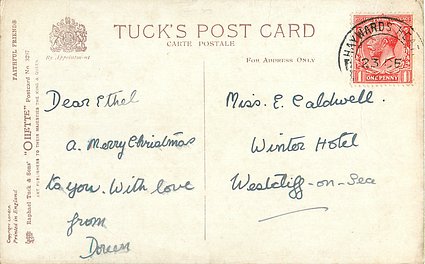 TUCK'S POST CARD
CARTE POSTALE
By Appointment
FOR ADDRESS ONLY
HAYWARDS HEATH
ONE PENNY
Dear Ethel
a. Merry Christmas
to you. With love
from
Doreen
Miss. E. Caldwell.
Winter Hotel
Westcliff-on-Sea
Raphael Tuck & Sons' "OILETTE" Postcard No.
FAITHFUL FRIENDS
ART PUBLISHERS TO THEIR MAJESTIES THE KING & QUEEN
Copyright London
Printed in England